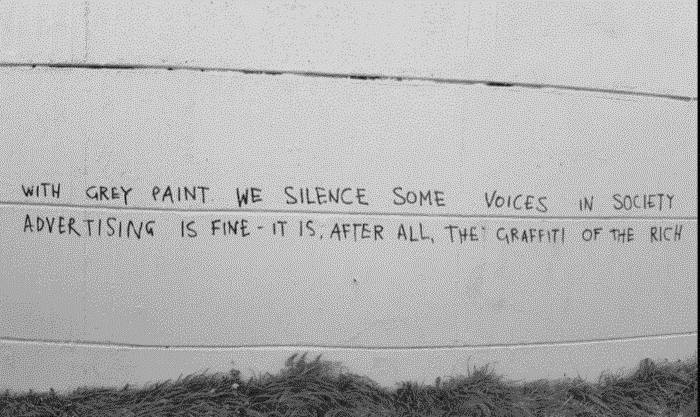 WITH GREY PAINT WE SILENCE SOME VOICES IN SOCIETY
ADVERTISING IS FINE - IT IS, AFTER ALL, THE GRAFFITI OF THE RICH